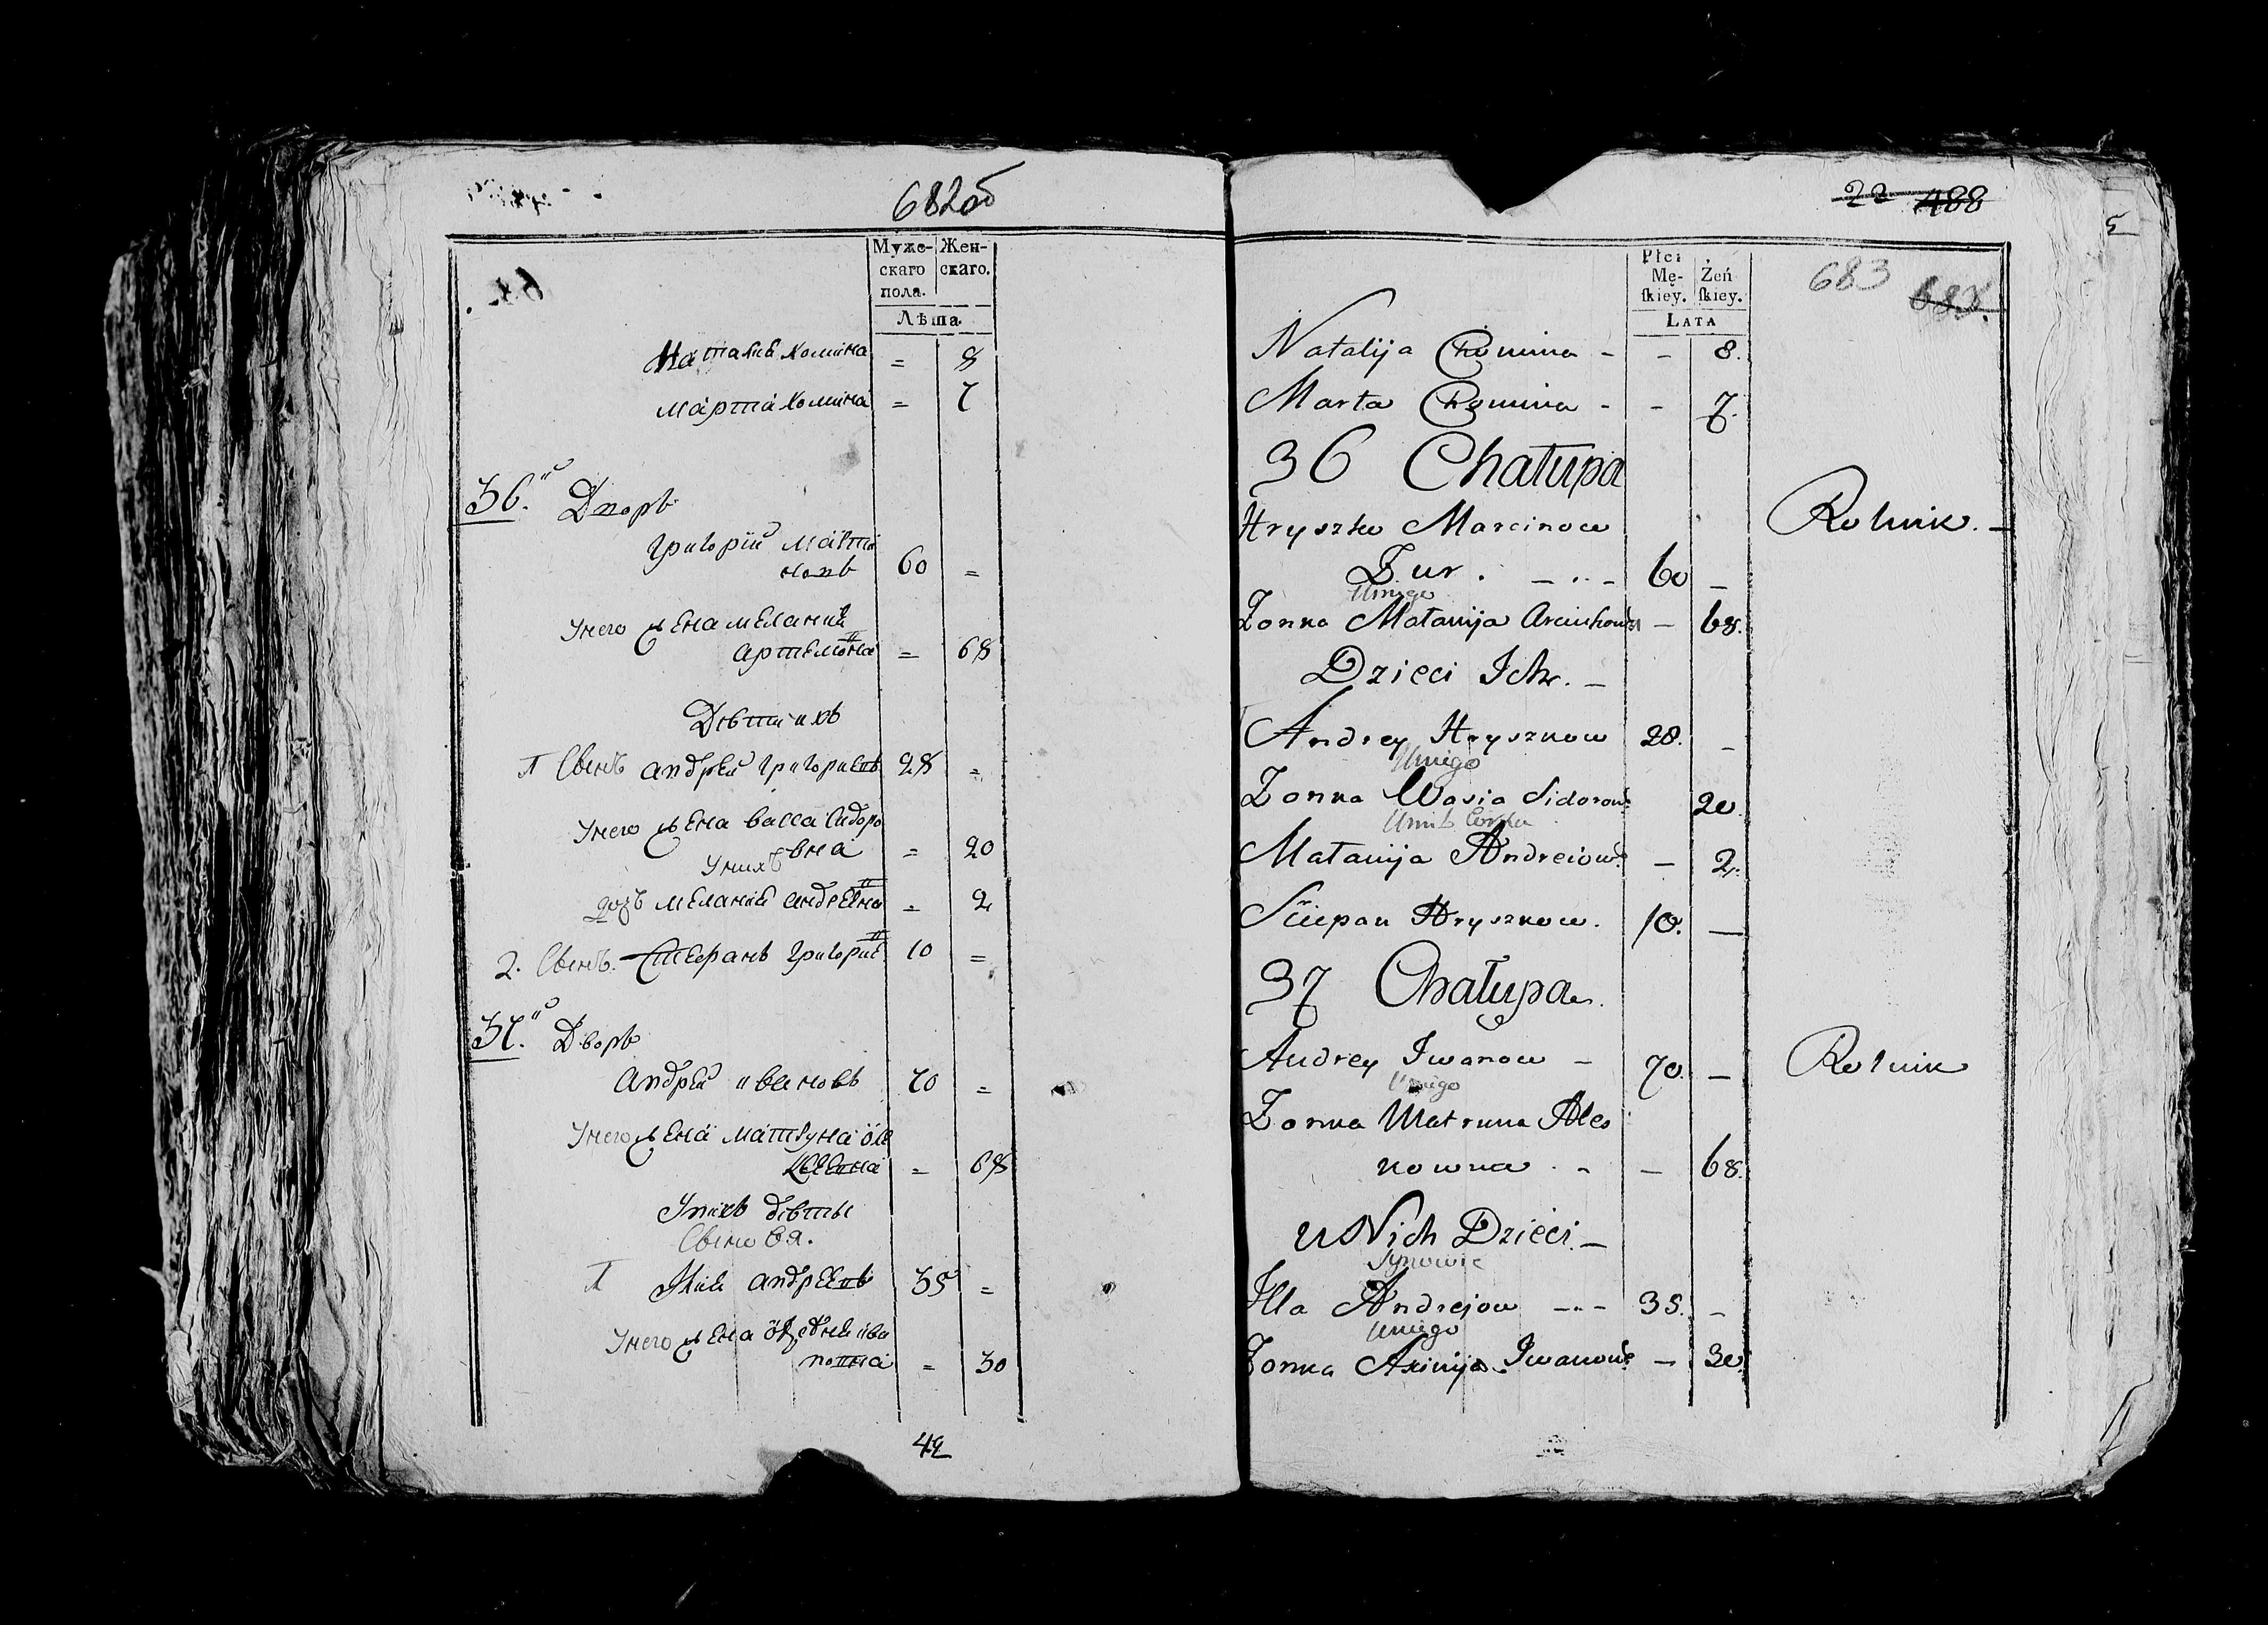 682об
Муже-
скаго
пола.
Жен-
скаго.
Лѣта
Наталия Хомина = 8
Марта Хомина = 7
36.й Дворъ
Григорий Марти
новъ 60 =
у него жена Мелания
Артемовна = 68
Дети ихъ
Сынъ Андрей Григориевъ 28 =
у него жена Васса Сидоро
вна = 20
у нихъ
дочь Мелания Андреевна = 2
2. Сынъ. Стефанъ Григорие 10 =
37.й Дворъ
Андрей Ивановъ 70 =
у него жена Матруна Оле
= 68
у нихъ дети
Сыновя.
Илия Андреевъ 35 =
у него жена Ива
новна = 30
42
22 488
683
Płci
Mę-
ſkiey.
Żeń
ſkiey.
LATA
Natalija Chomina - - 8.
Marta Chomina - - 7.
36 Chałupa
Hryszko Marcinow Rolnik. —
Żur. — .. — 60 —
Uniego
Zonna Małanija — 68.
Dzieci Ich. —
Andrey Hryszkow 28. —
Uniego
Zonna Wasia Sidorow: 20.
Unich Corka
Małanija Andreiow: — 2.
Sciepan Hryszkow. 10. —
37 Chałupa.
Andrey Iwanow — 70. — Rolnik
Uniego
Zonna Matruna Alex
kowna . - — 68.
u Nich Dzieci. —
Synowie
Illa Andrejow — .. — 35. —
Uniego
Zonna Axinija Iwanow: — 30.